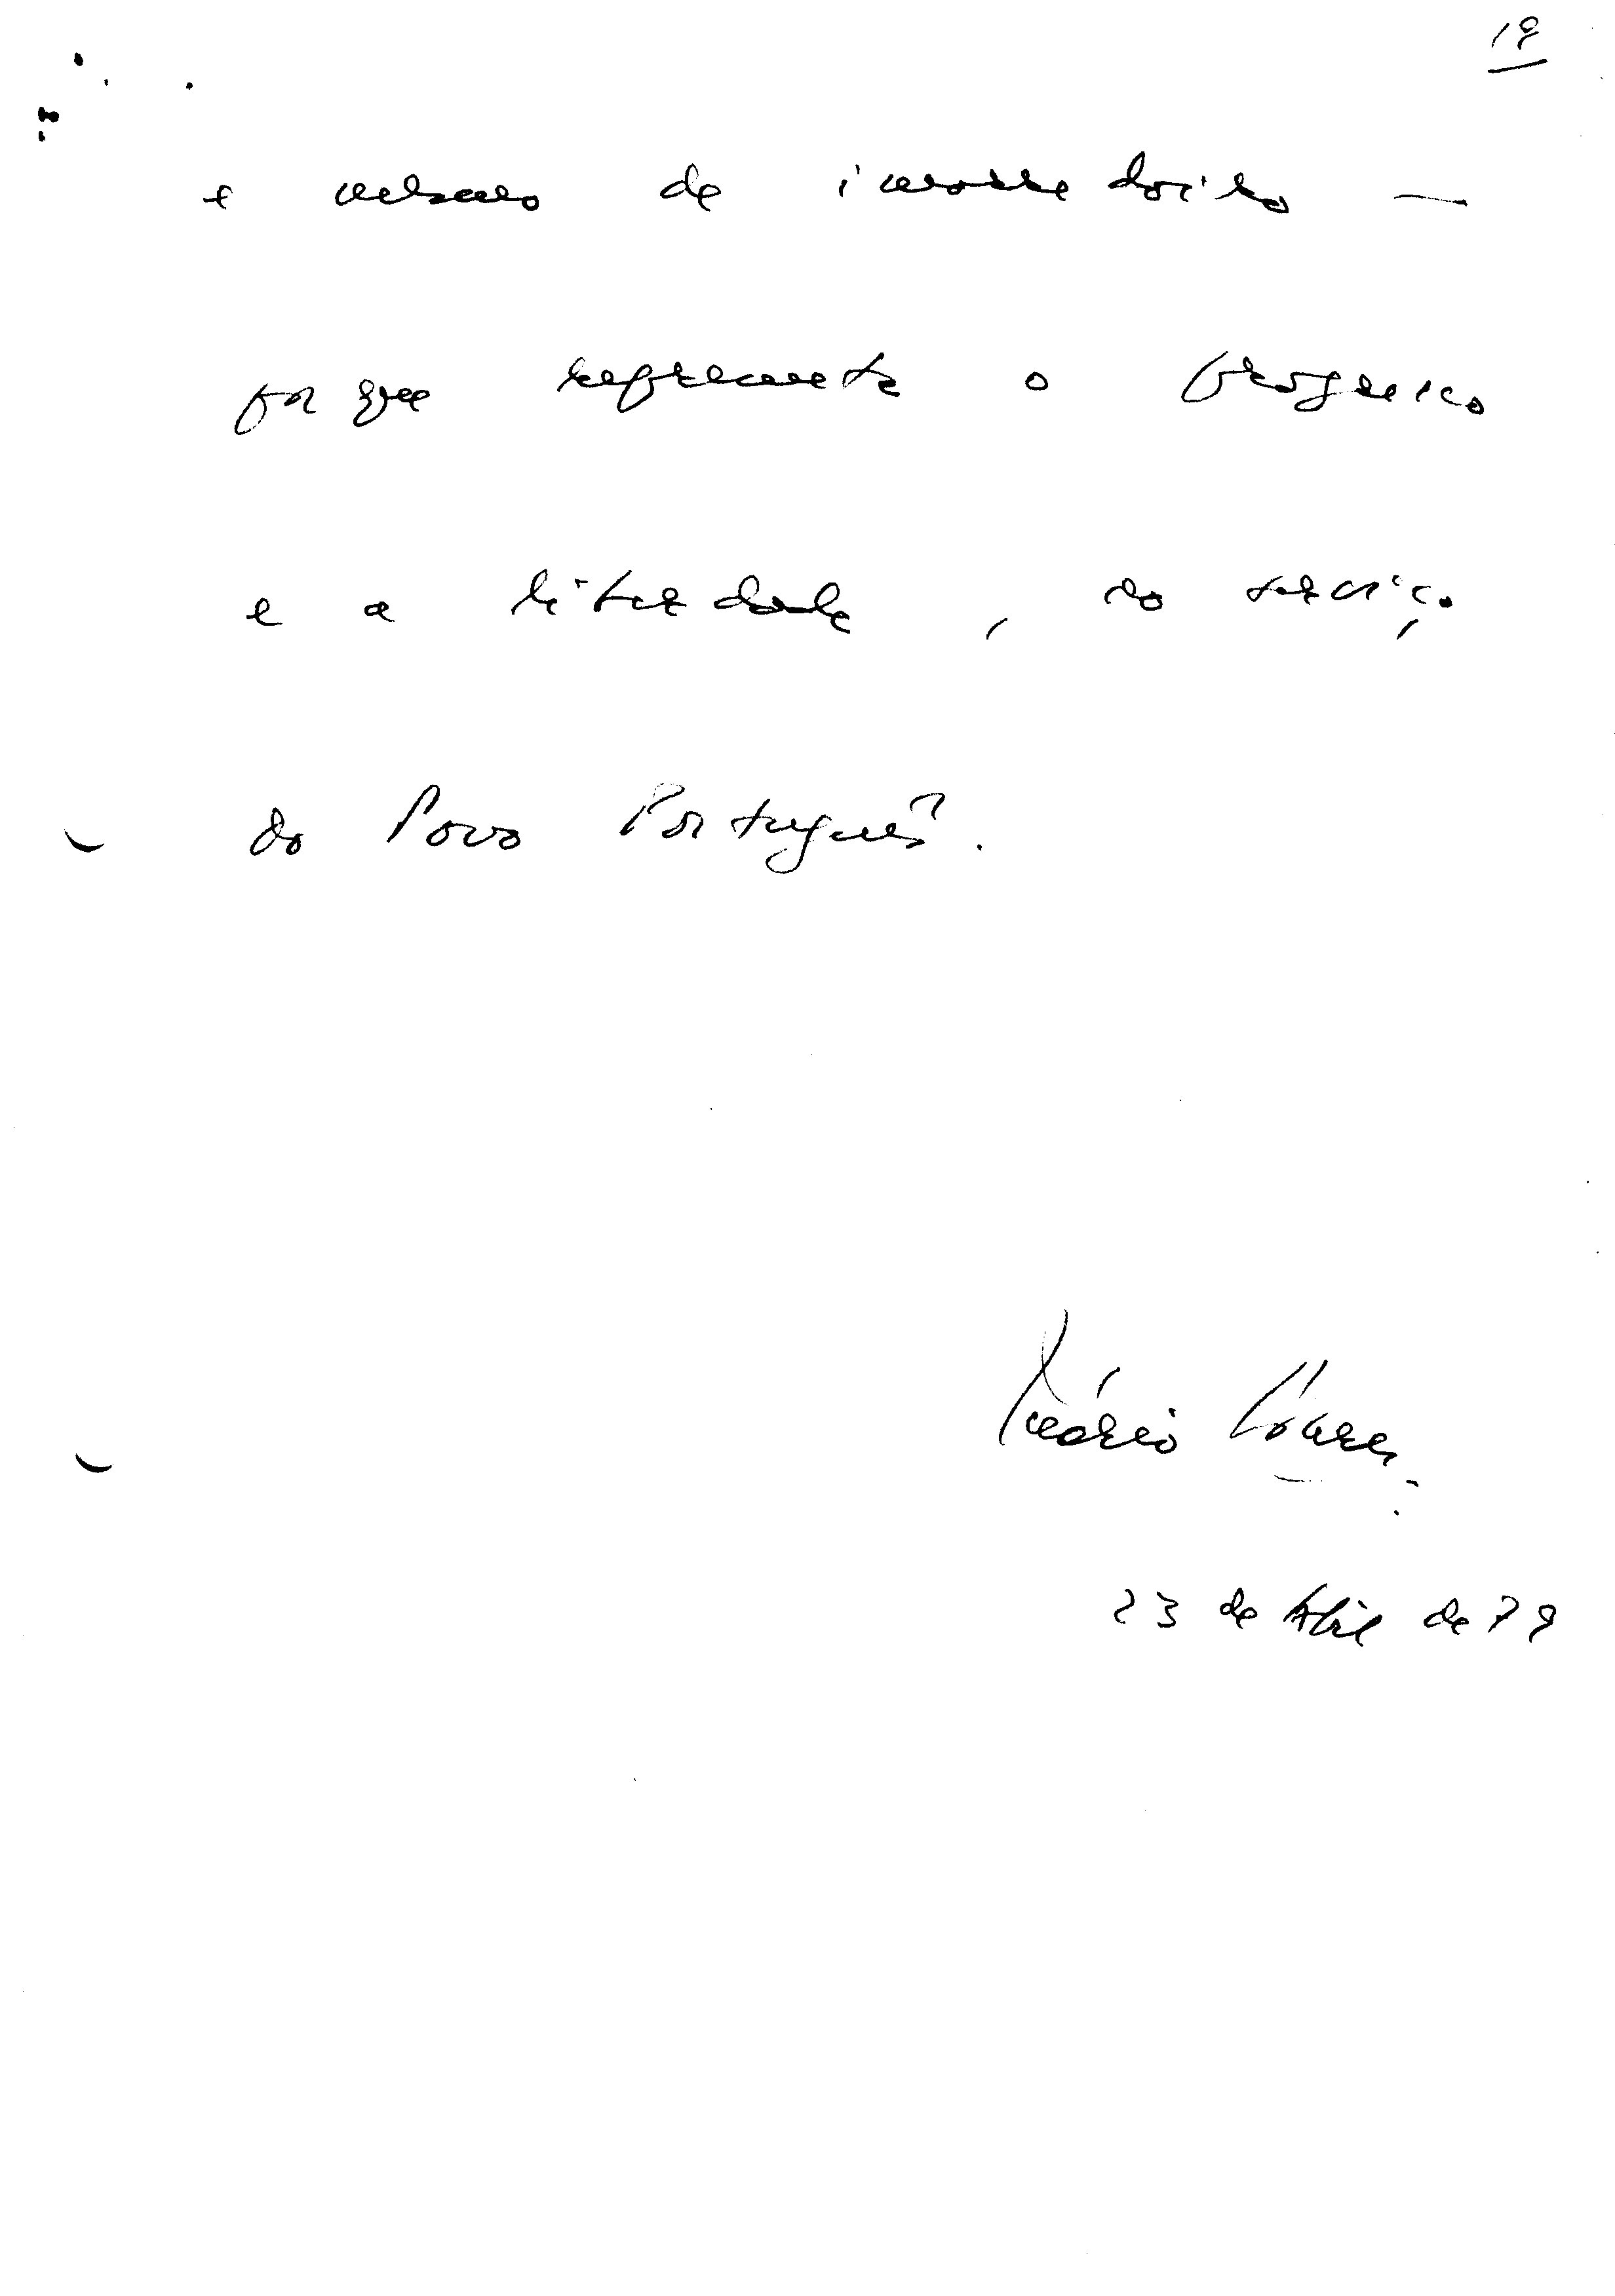 19
e mesmo de incompreendido —
porque representa o progresso
e a liberdade, ao serviço
do Povo Português.
Mário Soares
23 de Abril de 79